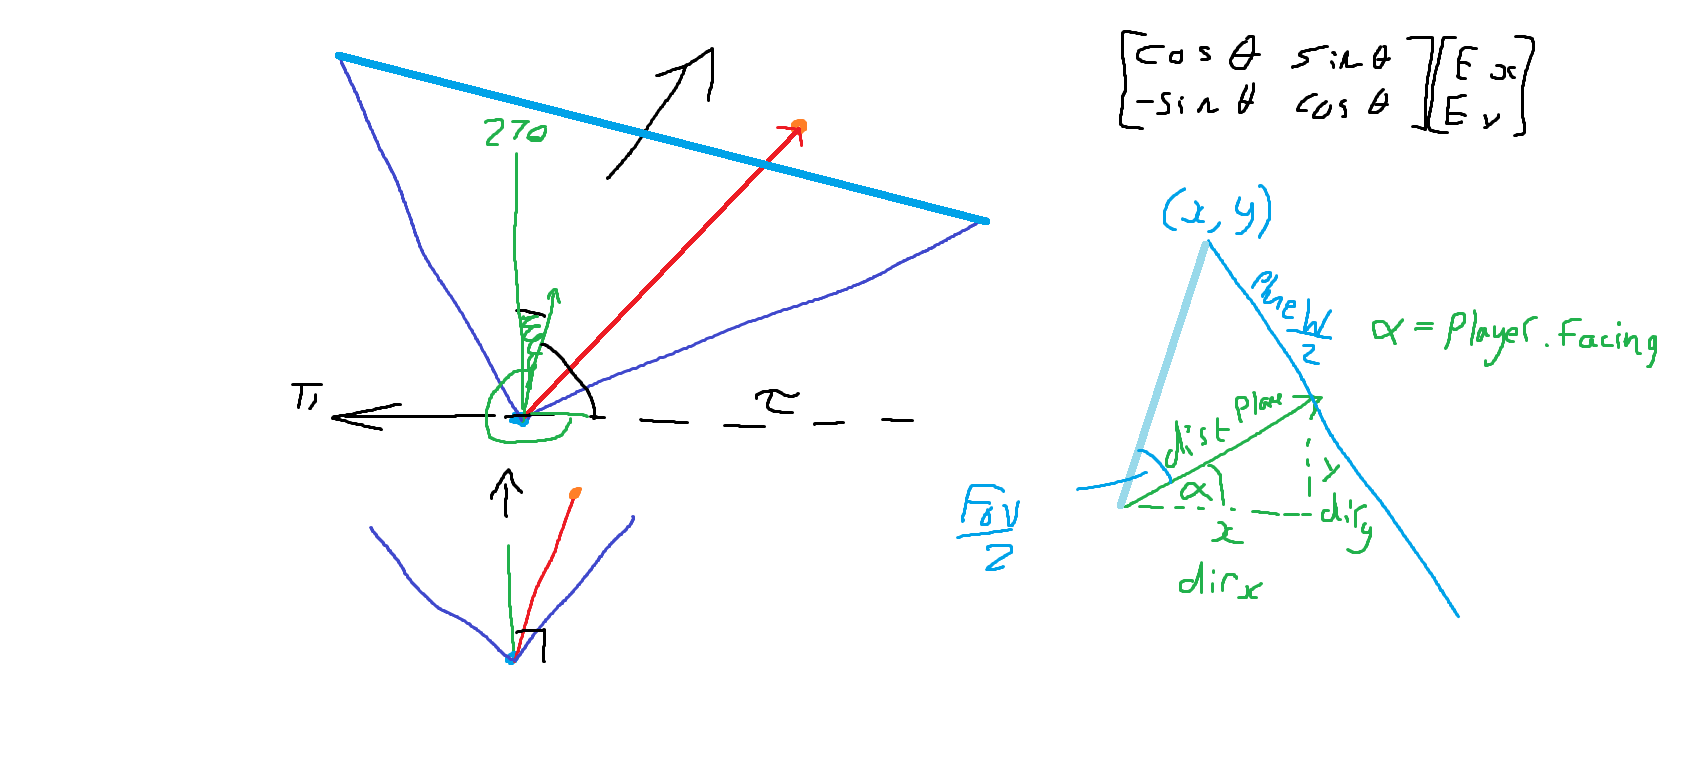 [cos θ sin θ] [E x]
[-sin θ cos θ] [E y]
270
(x, y)
Plane W
2
α = Player.Facing
π
τ
dist Plane
α
y
x
dir y
dir x
Fov
2